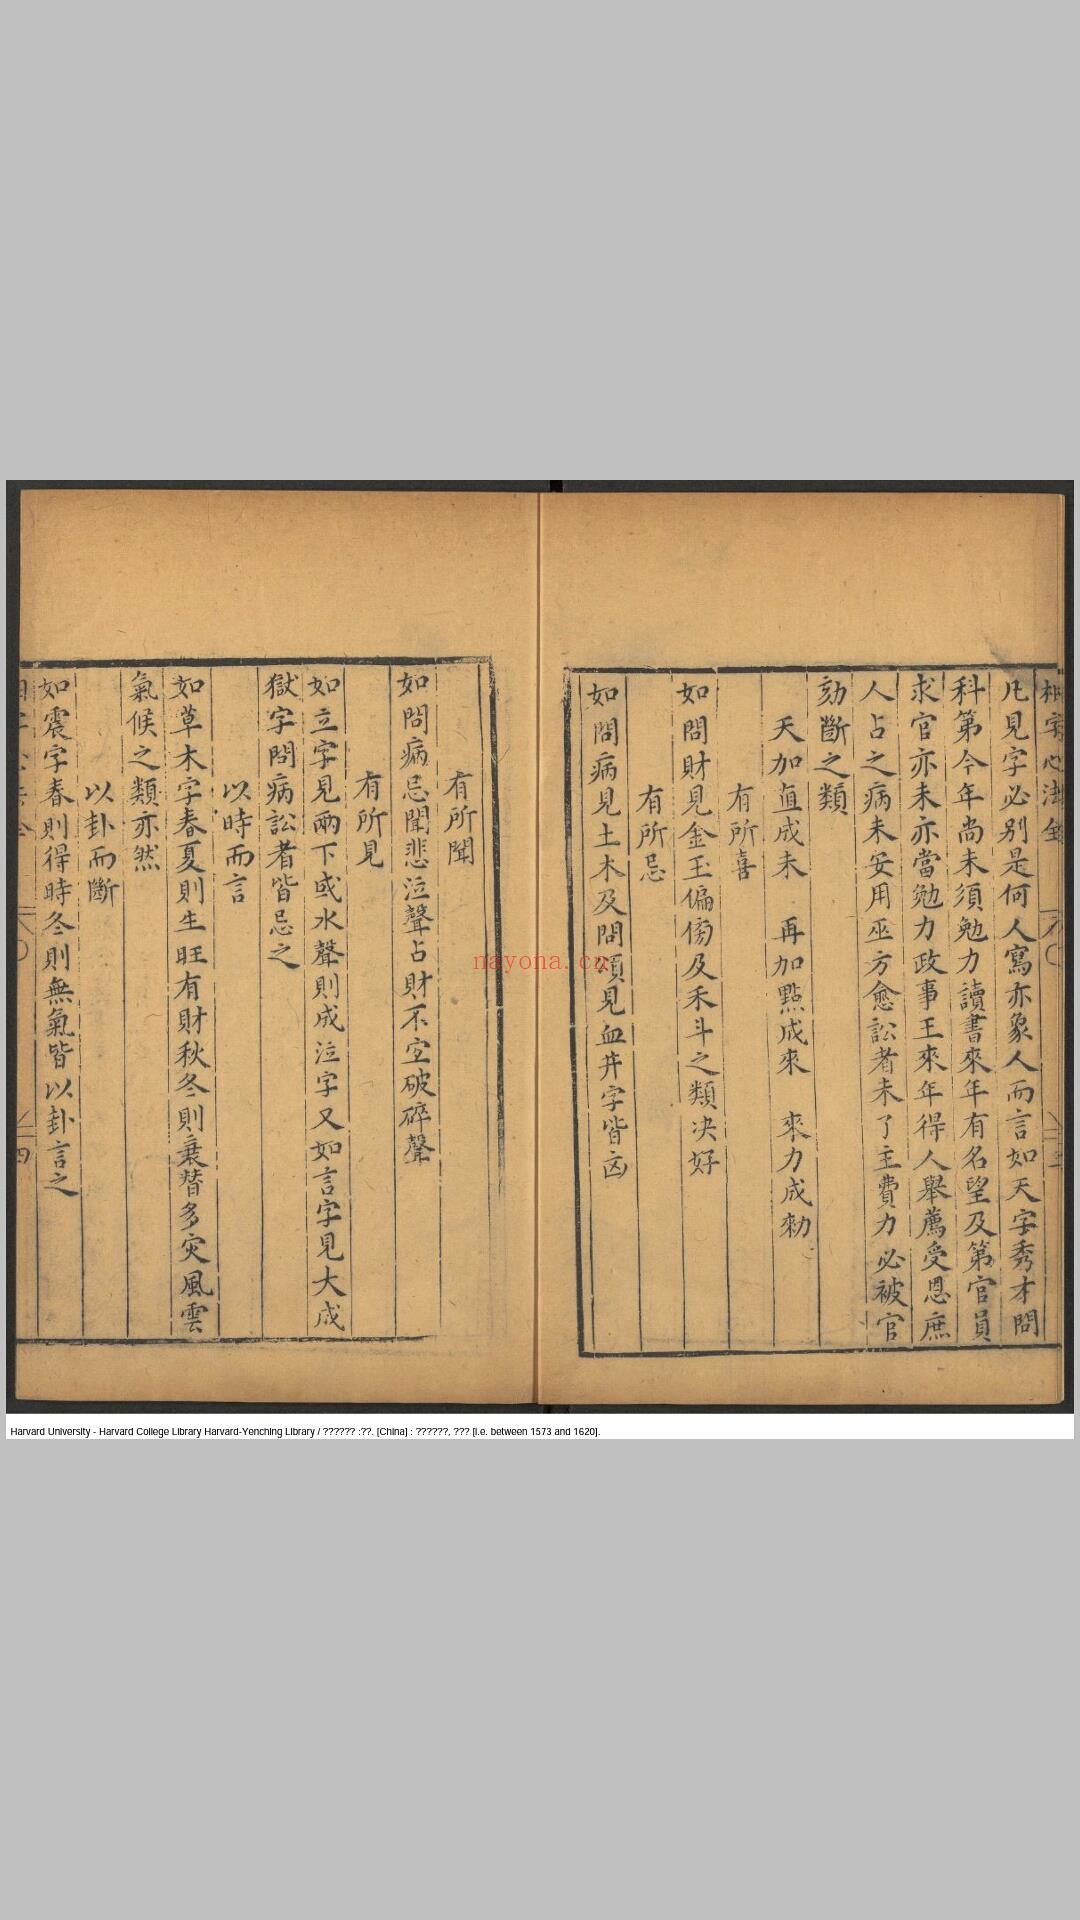 相字心法全
凡見字必别是何人寫亦象人而言如天字秀才問
科第今年尚未須勉力讀書來年有名望及第官員
求官亦未亦當勉力政事王來年得人舉薦受恩庶
人占之病未安用巫方愈訟者未了主費力必被官
劾斷之類
天加直成未 再加點成來 來力成勑
有所喜
如問財見金玉偏傍及禾斗之類决好
有所忌
如問病見土木及問頭見血井字皆凶
有所聞
如問病忌聞悲泣聲占財不宜破碎聲
有所見
如立字見兩下或水聲則成泣字又如言字見犬成
獄字問病訟者皆忌之
以時而言
如草木字春夏則生旺有財秋冬則衰替多灾風雲
氣候之類亦然
以卦而斷
如震字春則得時冬則無氣皆以卦言之
四
nayona.cn
Harvard University - Harvard College Library Harvard-Yenching Library / ?????? :??. [China] : ??????, ??? [i.e. between 1573 and 1620].